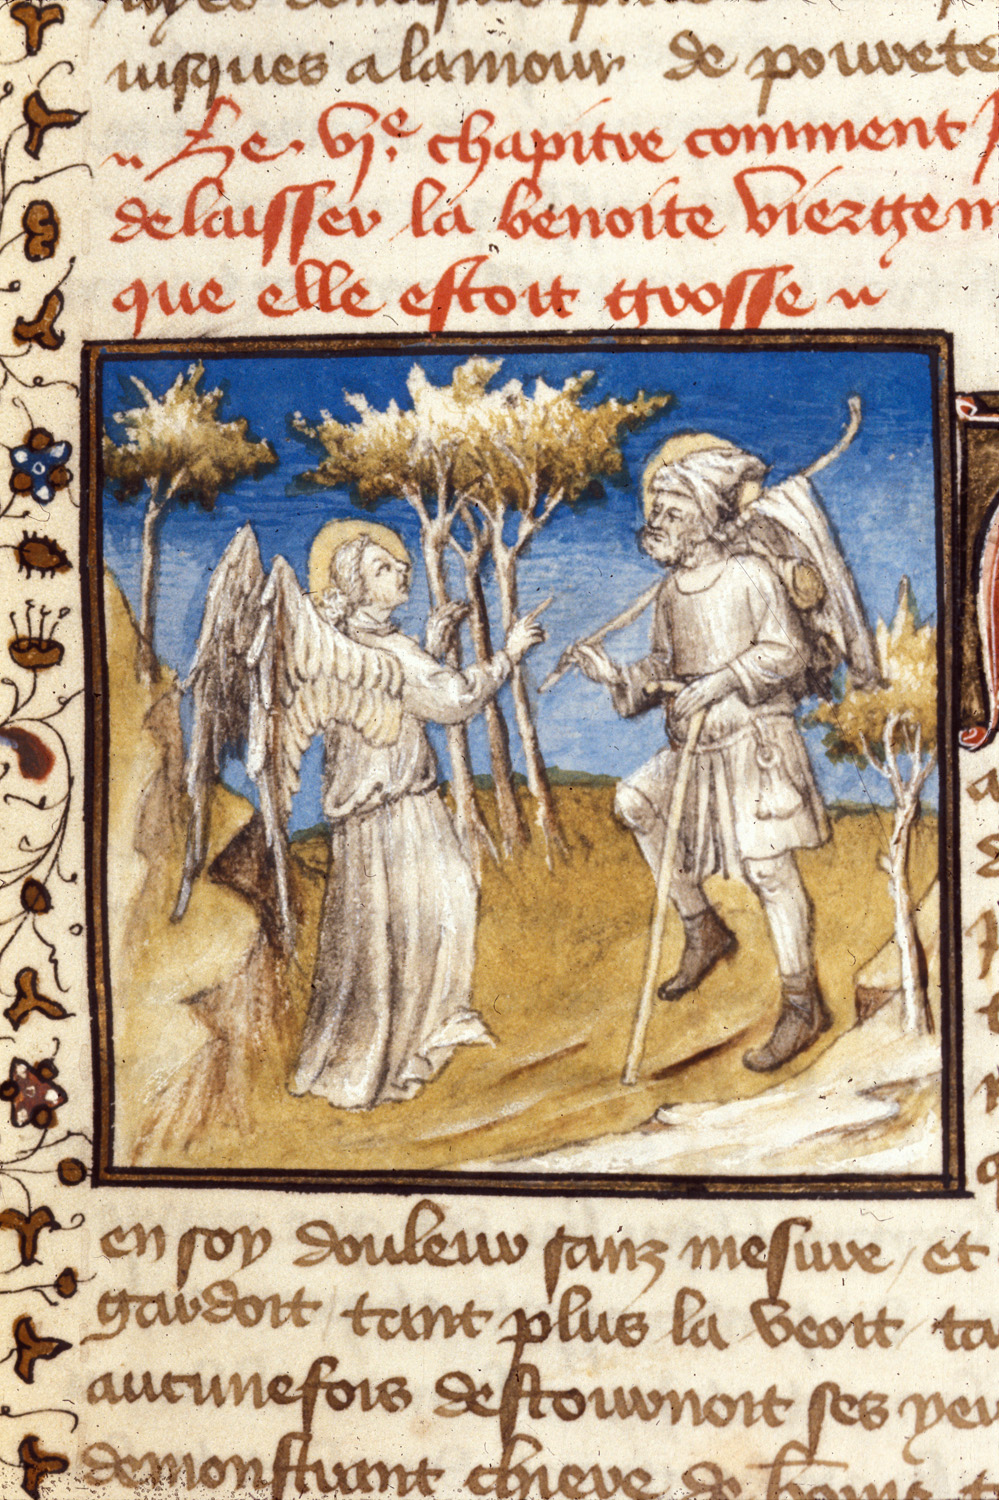 iusques a lamour de pouurete
Le .vje. chapitre comment
delaisser la benoite vierge
que elle estoit grosse
en soy douleur sanz mesure / et
gardoit tant plus la veoit
aucunefois destournoit ses
demonstrant chiere de